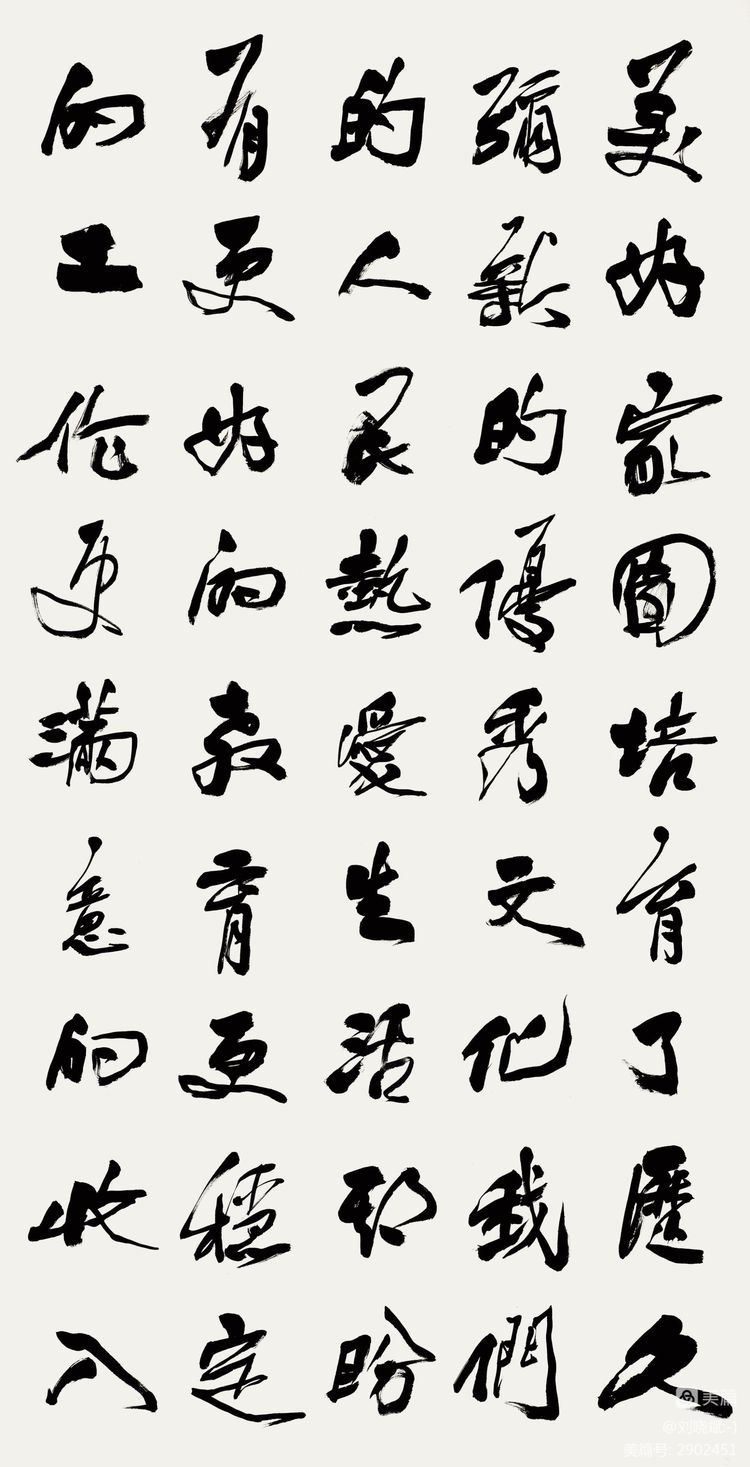 美好家園培育了歷久
彌新的優秀文化我們
的人民熱愛生活期盼
有更好的教育更穩定
的工作更滿意的收入
美篇
美篇号: 2902451